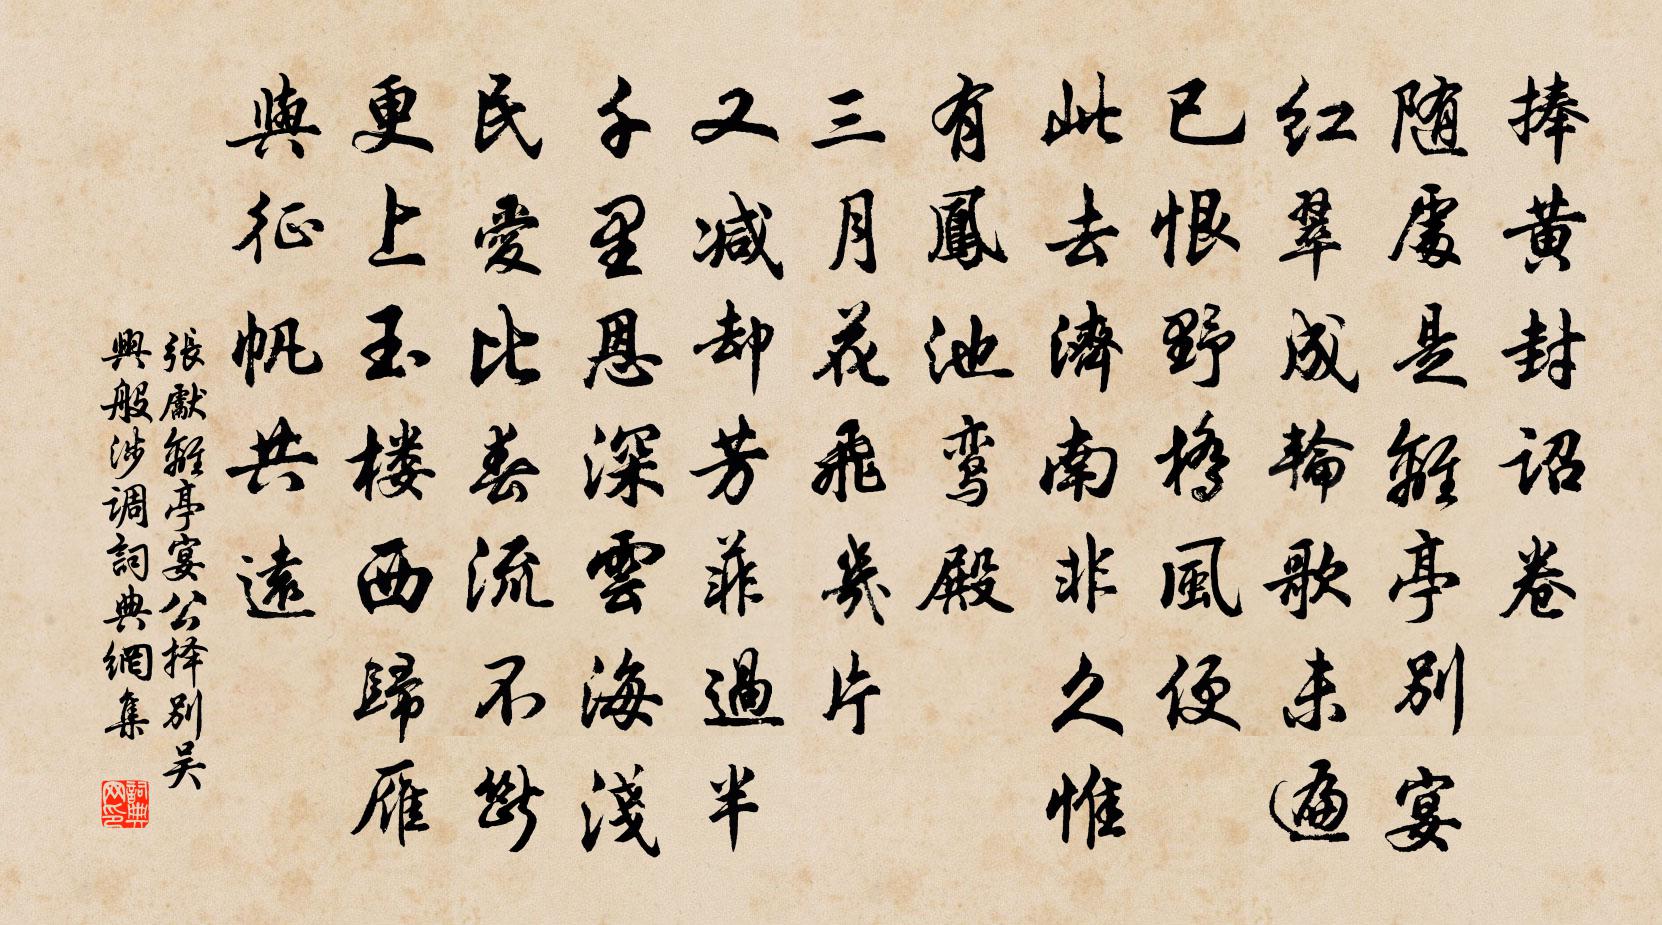 捧黄封诏卷
随處是離亭别宴
红翠成輪歌未遍
已恨野橋風便
此去濟南非久惟
有鳳池鸾殿
三月花飛幾片
又减却芳菲過半
千里恩深雲海淺
民愛比春流不斷
更上玉楼西歸雁
與征帆共遠
張獻離亭宴公择别吴
興般涉调詞典網集
詞典网印